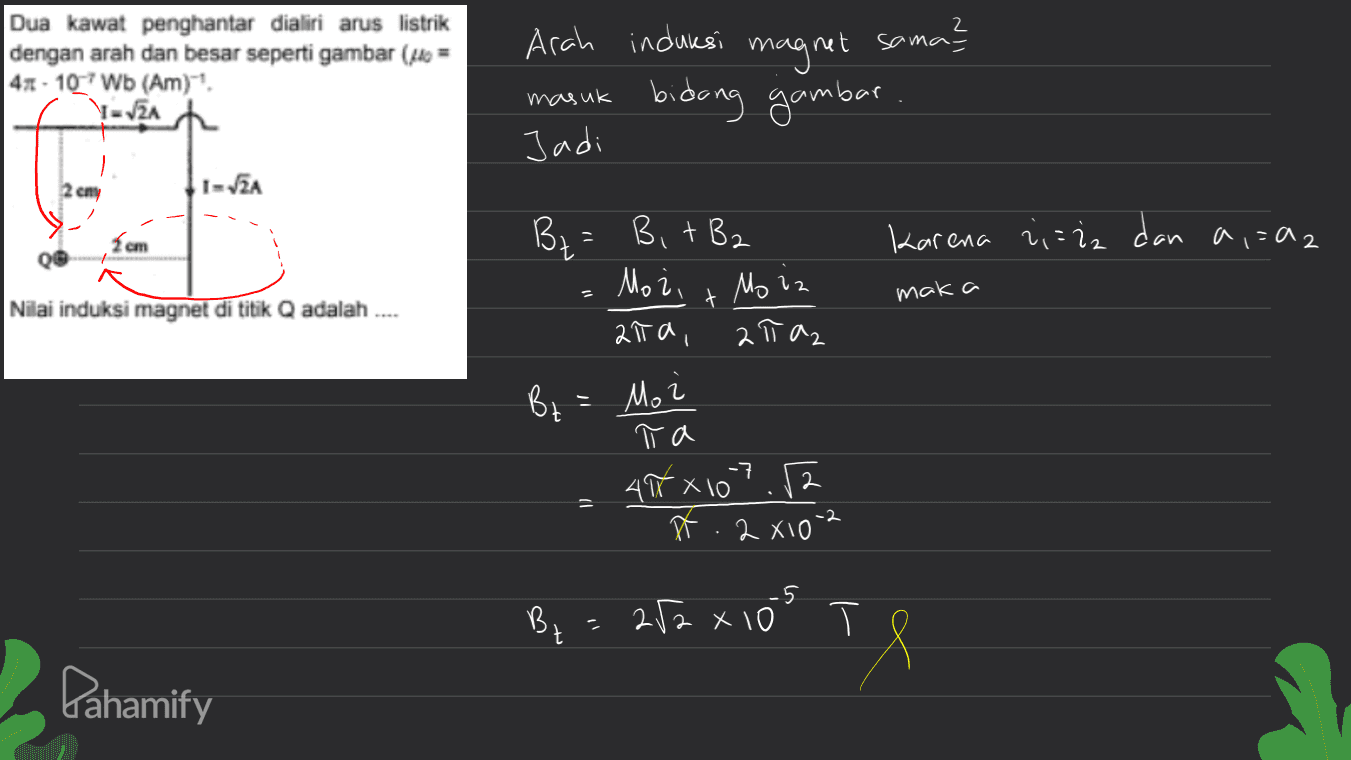 Dua kawat penghantar dialiri arus listrik
dengan arah dan besar seperti gambar (μ₀ =
4π - 10⁻⁷ Wb (Am)⁻¹.
I = √2A
2 cm
I = √2A
2 cm
Q
Nilai induksi magnet di titik Q adalah ....
Arah induksi magnet sama²
masuk bidang gambar.
Jadi
Bt = B₁ + B₂
= μ₀ i₁ / 2π a₁ + μ₀ i₂ / 2π a₂
Karena i₁ = i₂ dan a₁ = a₂
maka
Bt = μ₀ i / π a
= 4π × 10⁻⁷ . √2 / π . 2 × 10⁻²
Bt = 2√2 × 10⁻⁵ T
Pahamify